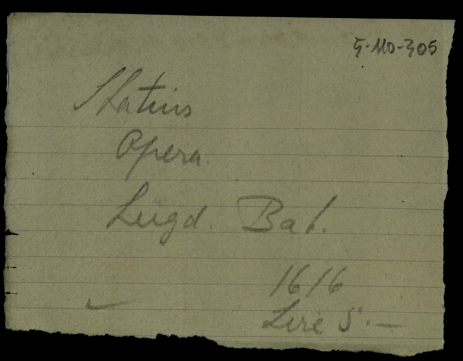 5-110-305
Statius
Opera.
Lugd. Bat.
1616
Lire 5.—